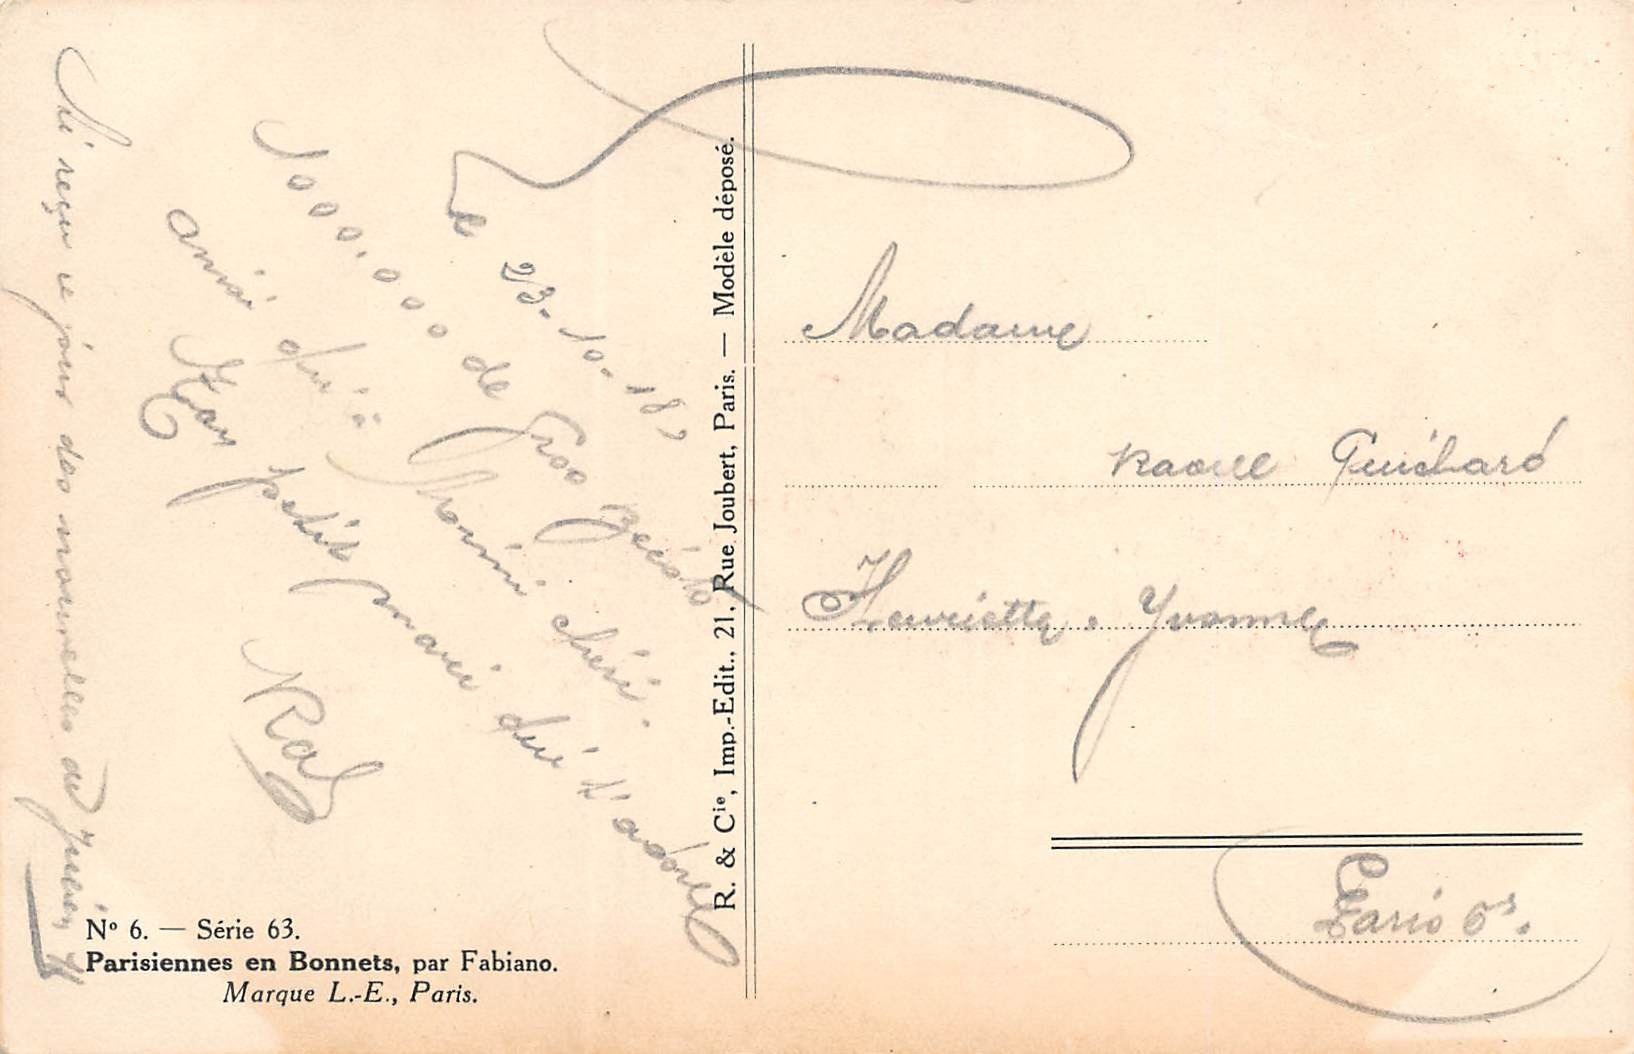 Le 23-10-18,
1000.000 de Gros
ainsi Mimi chéri.
Ton petit mari qui t'adore
Ral
reçu ce jour des nouvelles de
Nº 6. — Série 63.
Parisiennes en Bonnets, par Fabiano.
Marque L.-E., Paris.
R. & Cie, Imp.-Edit., 21, Rue Joubert, Paris. — Modèle déposé.
Madame
Raoul
Henriette. Yvonne
Paris